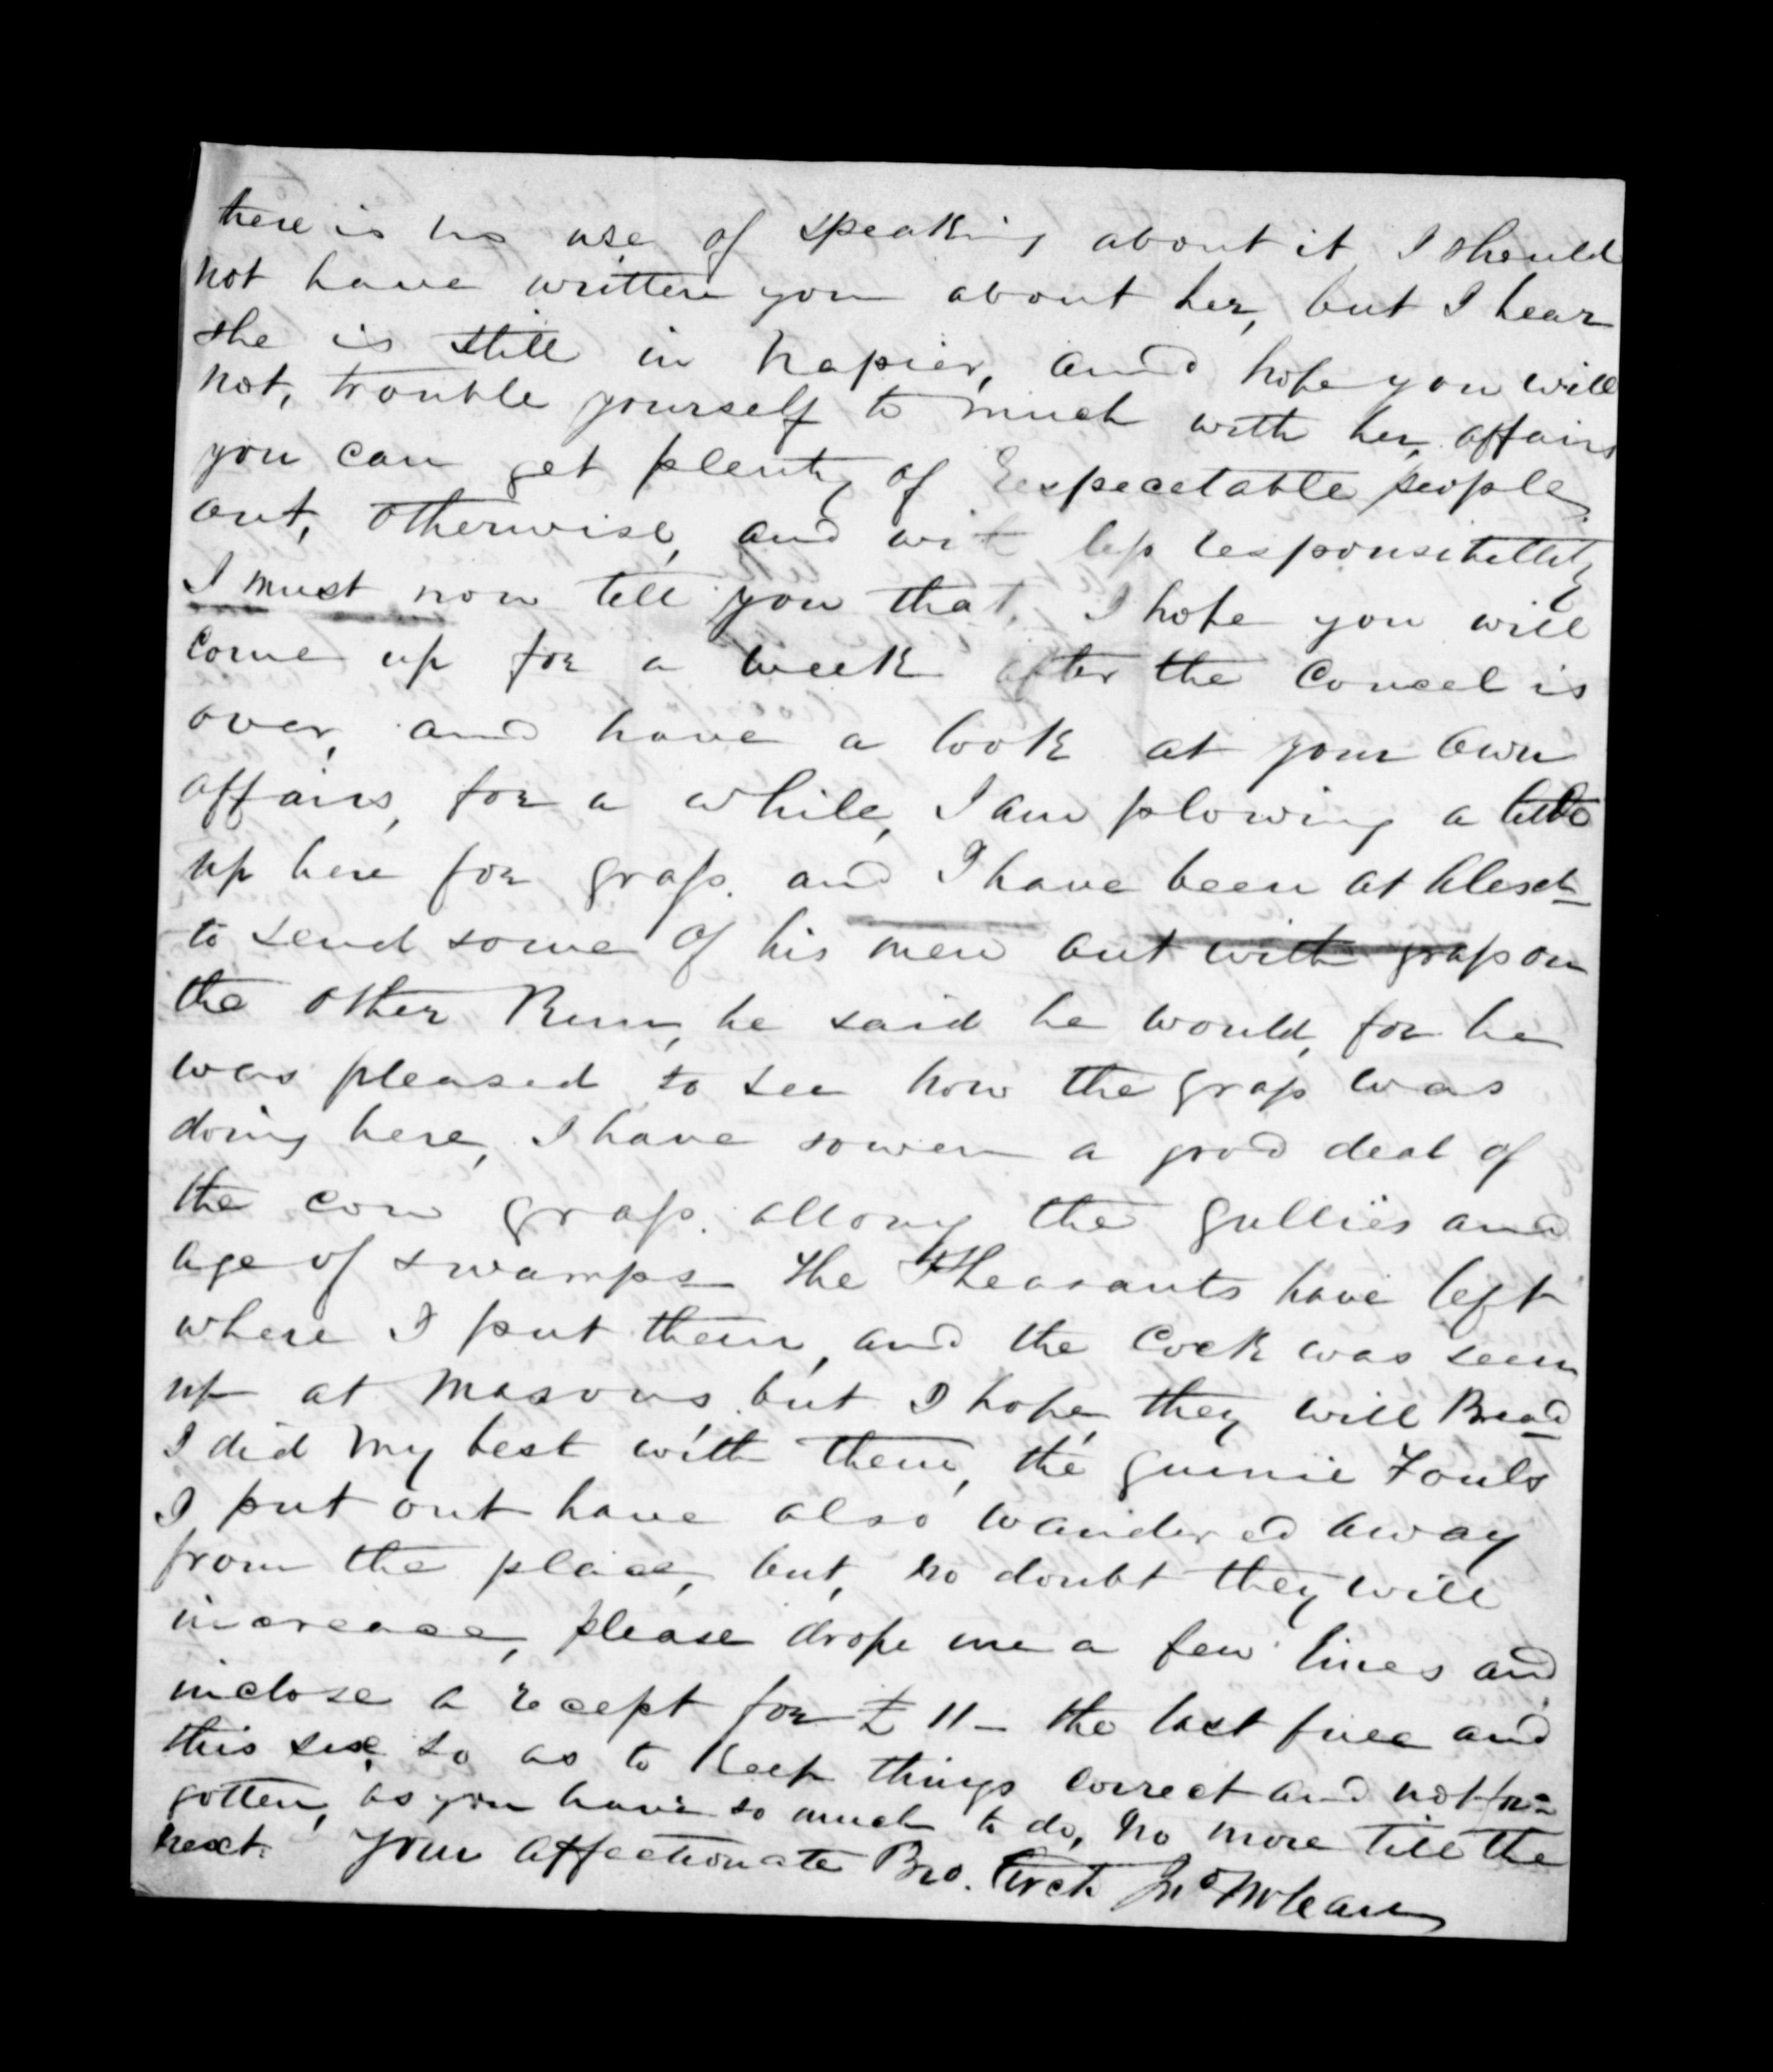 there is no use of speaking about it I should
not have written you about her, but I hear
she is still in Napier, and hope you will
not, trouble yourself to much with her affairs
you can get plenty of respecetable people
out, otherwise, and wit less responsibillity
I must now tell you that, I hope you will
come up for a week after the Councel is
over, and have a look at your own
affairs, for a while, I am plowing a little
up here for grass. and I have been at Alexdr
to send some of his men out with grass on
the other Run, he said he would, for he
was pleased to see how the grass was
doing here, I have sowen a good deal of
the cow grass. allong the gullies and
age of swamps the Pheasants have left
where I put them, and the Cock was seen
up at Masons but I hope they will Bread
I did my best with them, the guinie Fouls
I put out have also wandered away
from the place, but, no doubt they will
increase, please drope me a few lines and
inclose a recept for £11 – the last five and
this six, so as to keep things correct and not for=
gotten, as you have so much to do, no more till the
next. Your affectionate Bro. Arch Jno McLean